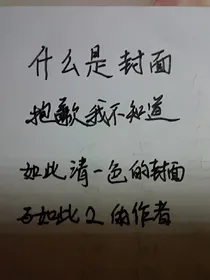 什么是封面
抱歉我不知道
如此清一色的封面
和如此2的作者